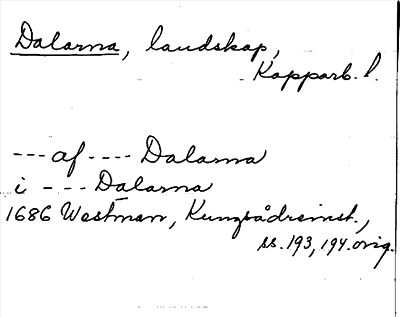 Dalarna, landskap,
Kopparb. l.
--- af ---- Dalarna
i - -- Dalarna
1686 Westman, Kungsådreinst.,
ss. 193, 194. orig.